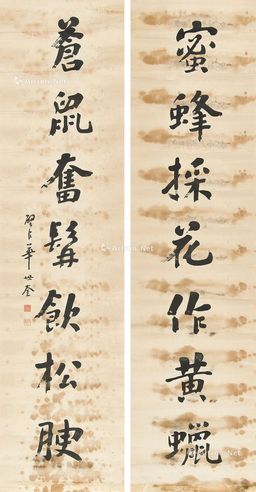 蜜蜂採花作黃蠟
蒼鼠奮髯飲松腴
華世奎